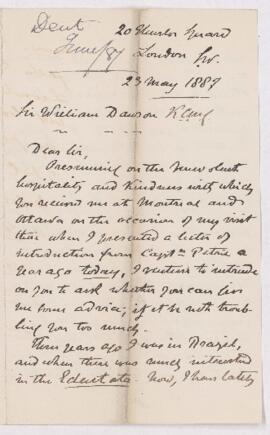 Dent
June/87
London Sw.
23 May 1887
Sir William Dawson K.C.M.G
Dear Sir,
Presuming on the
hospitality and kindness with which
you received me at Montreal and
Ottawa on the occasion of my visit
there when I presented a letter of
introduction from Captn Petrie a
year ago today, I venture to intrude
on you to ask whether you can give
me some advice, if it be not troub-
ling you too much.
Three years ago I was in Brazil,
and when there was much interested
in the Edentata. Now, I have lately